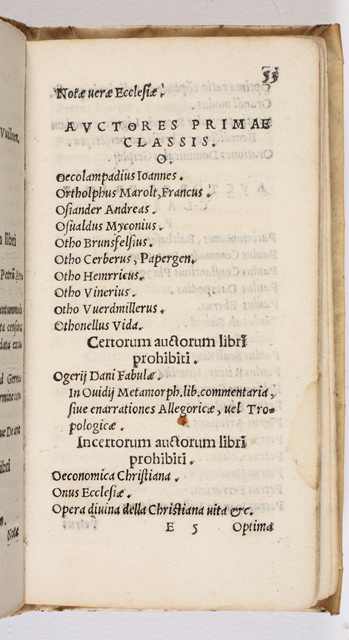 33
Notæ ueræ Ecclesiæ.
AVCTORES PRIMAE
CLASSIS.
O.
Oecolampadius Ioannes.
Ortholphus Marolt, Francus.
Osiander Andreas.
Osualdus Myconius.
Otho Brunsfelsius.
Otho Cerberus, Papergen.
Otho Hemrricus.
Otho Vinerius.
Otho Vuerdmillerus.
Othonellus Vida.
Certorum auctorum libri
prohibiti.
Ogerij Dani Fabulæ.
In Ouidij Metamorph. lib. commentaria,
siue enarrationes Allegoricæ, uel Tro-
pologicæ.
Incertorum auctorum libri
prohibiti.
Oeconomica Christiana.
Onus Ecclesiæ.
Opera diuina della Christiana uita &c.
E 5 Optima